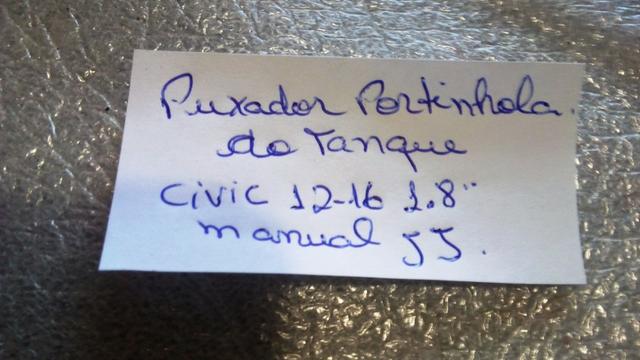 Puxador Portinhola.
do Tanque
Civic 12-16 1.8"
manual JJ.